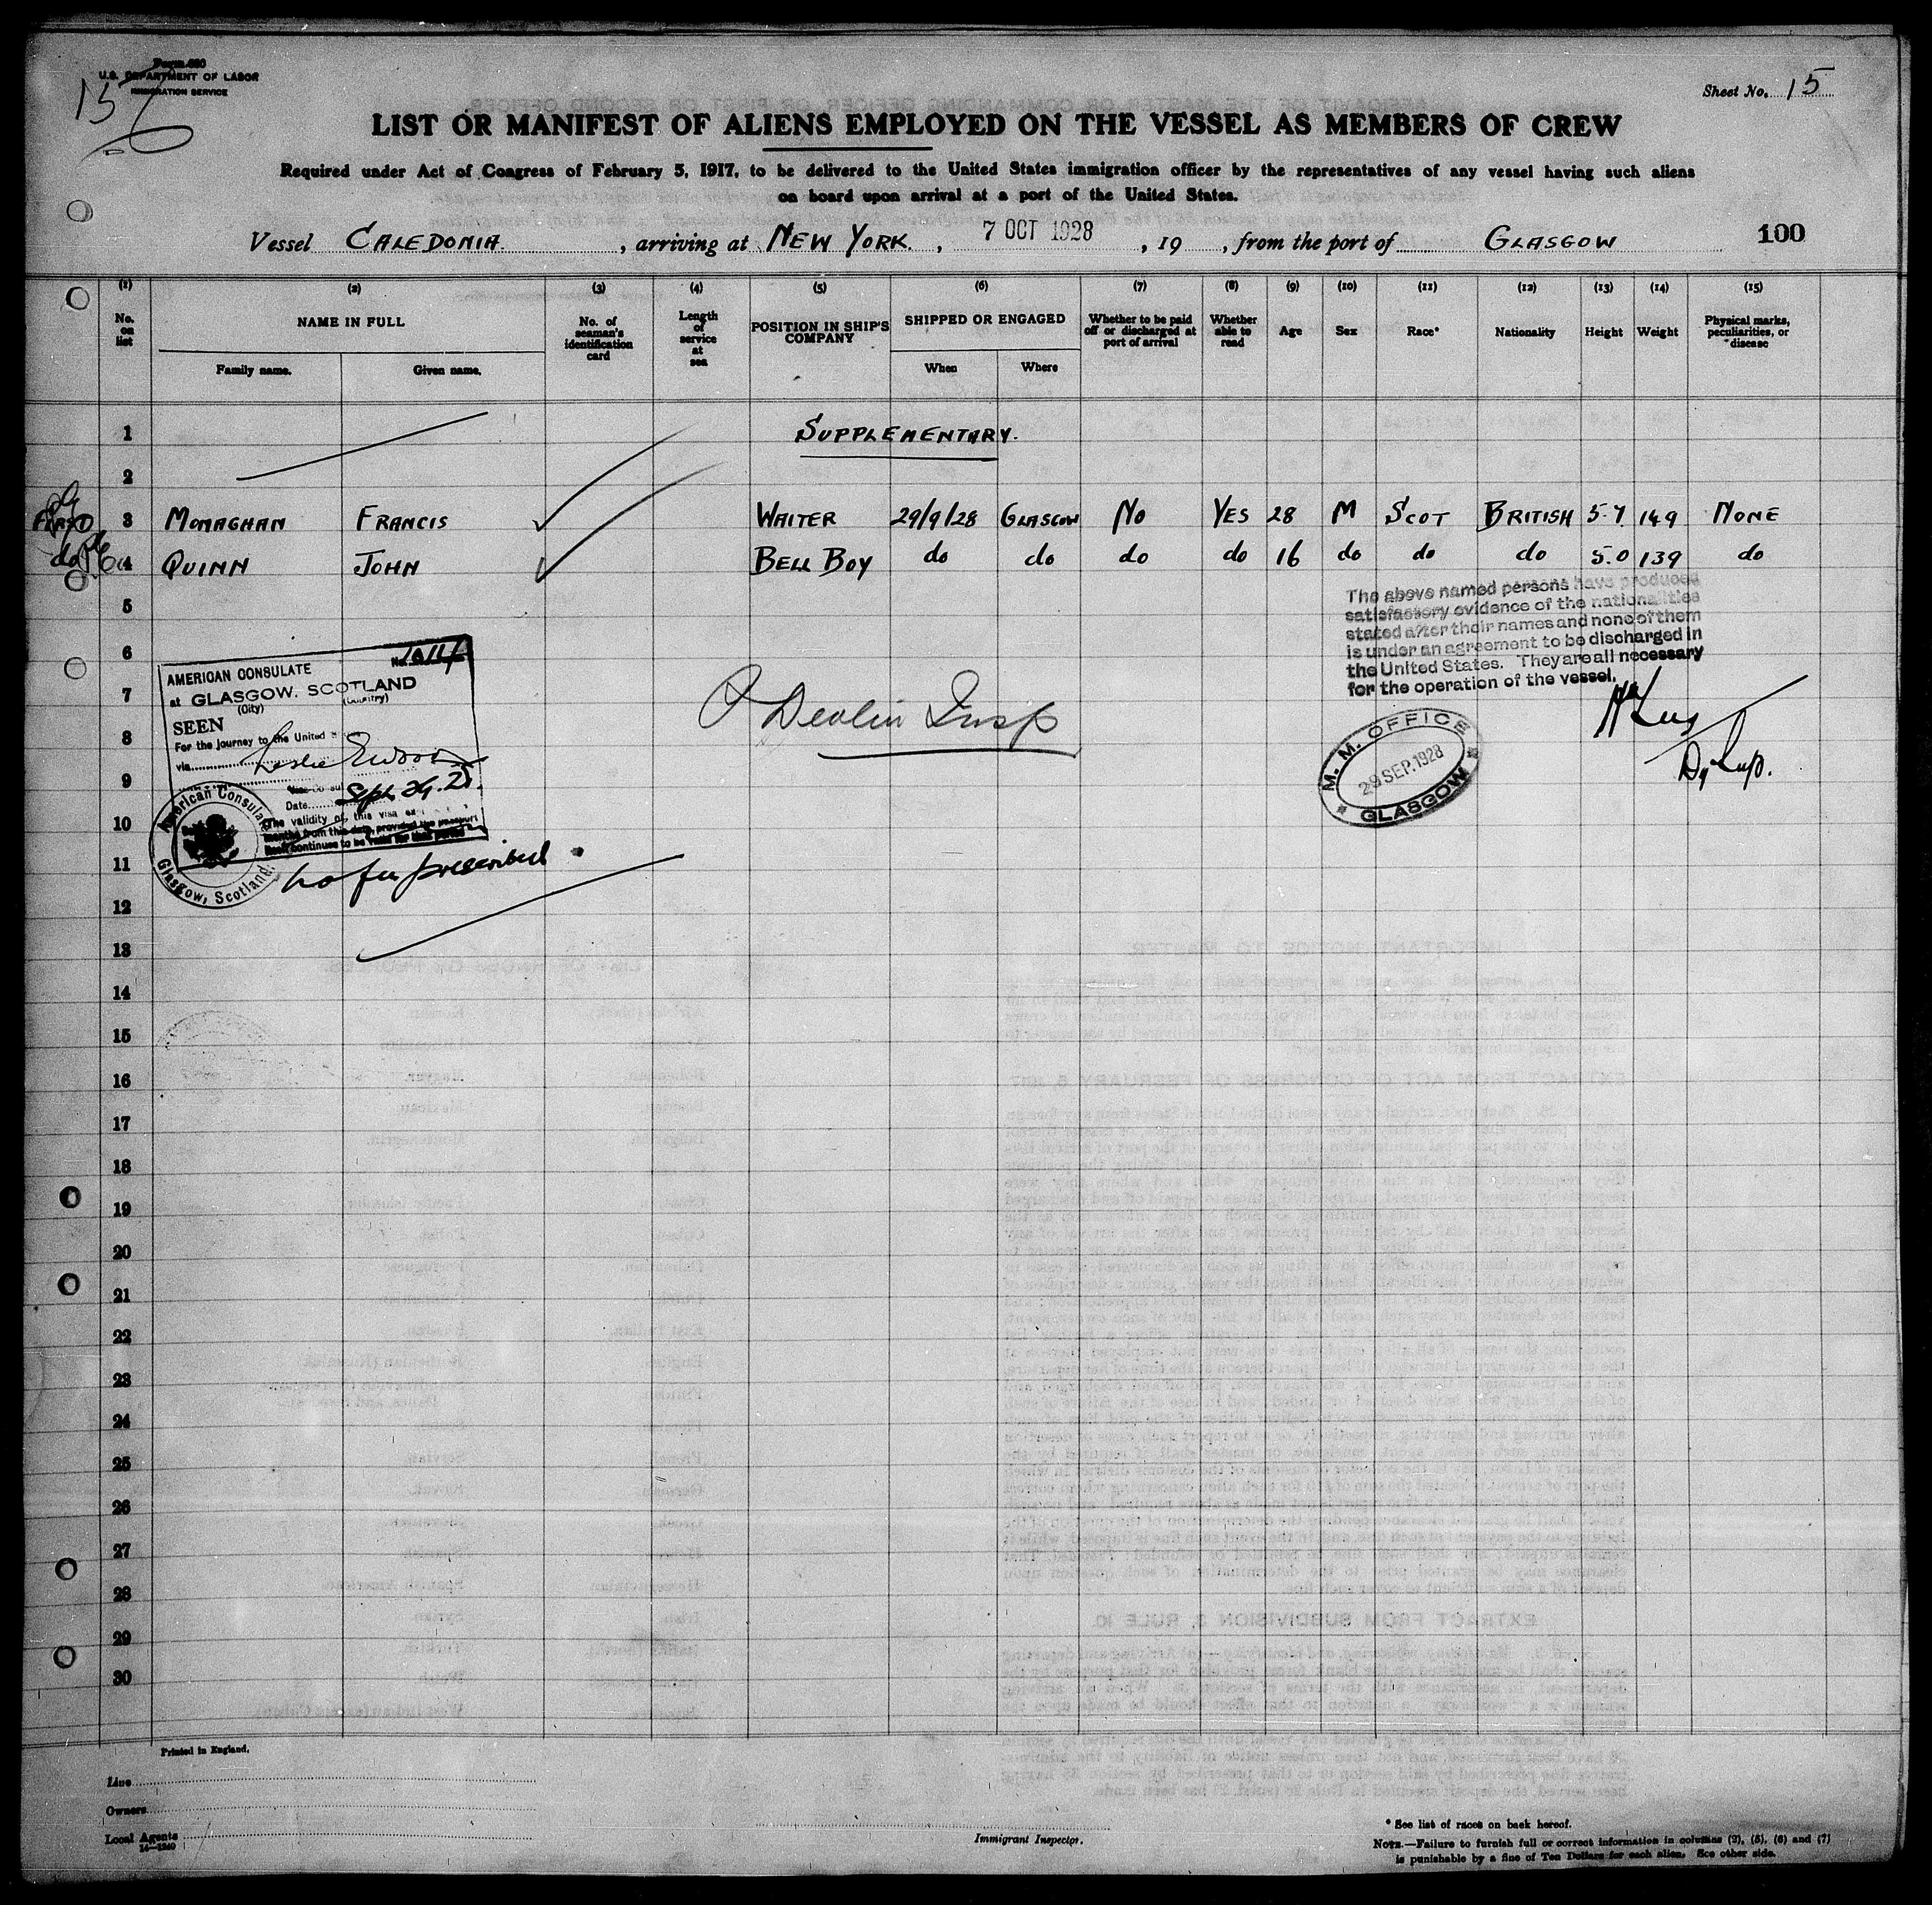 Form 680
U.S. DEPARTMENT OF LABOR
IMMIGRATION SERVICE
15
Sheet No. 15
LIST OR MANIFEST OF ALIENS EMPLOYED ON THE VESSEL AS MEMBERS OF CREW
Required under Act of Congress of February 5, 1917, to be delivered to the United States immigration officer by the representatives of any vessel having such aliens
on board upon arrival at a port of the United States.
Vessel CALEDONIA. , arriving at NEW YORK. , 7 OCT 1928 , 19 , from the port of GLASGOW 100
(1) (2) (3) (4) (5) (6) (7) (8) (9) (10) (11) (12) (13) (14) (15)
No. on list NAME IN FULL Family name. Given name. No. of seaman's identification card Length of service at sea POSITION IN SHIP'S COMPANY SHIPPED OR ENGAGED When Where Whether to be paid off or discharged at port of arrival Whether able to read Age Sex Race* Nationality Height Weight Physical marks, peculiarities, or disease
1 SUPPLEMENTARY.
2
3 MONAGHAN FRANCIS WAITER 29/9/28 GLASGOW NO YES 28 M SCOT BRITISH 5.7 149 NONE
do 4 QUINN JOHN BELL BOY do do do do 16 do do do 5.0 139 do
5
The above named persons have produced
satisfactory evidence of the nationalities
stated after their names and none of them
is under an agreement to be discharged in
the United States. They are all necessary
for the operation of the vessel.
6
AMERICAN CONSULATE No.
at GLASGOW, SCOTLAND
(City) (Country)
SEEN
For the journey to the United
via
Date Sept 29. 28.
The validity of this visa
months from this date, provided the passport
itself continues to be valid for that period
American Consulate
Glasgow, Scotland.
no fee prescribed.
7
P Devlin Insp
8
M. M. OFFICE
29 SEP. 1928
GLASGOW
Dy Sup.
9
10
11
12
13
14
15
16
17
18
19
20
21
22
23
24
25
26
27
28
29
30
Printed in England.
Line
Owners
Local Agents
14—1240
Immigrant Inspector.
* See list of races on back hereof.
NOTE.—Failure to furnish full or correct information in columns (2), (5), (6) and (7)
is punishable by a fine of Ten Dollars for each alien. See other side.